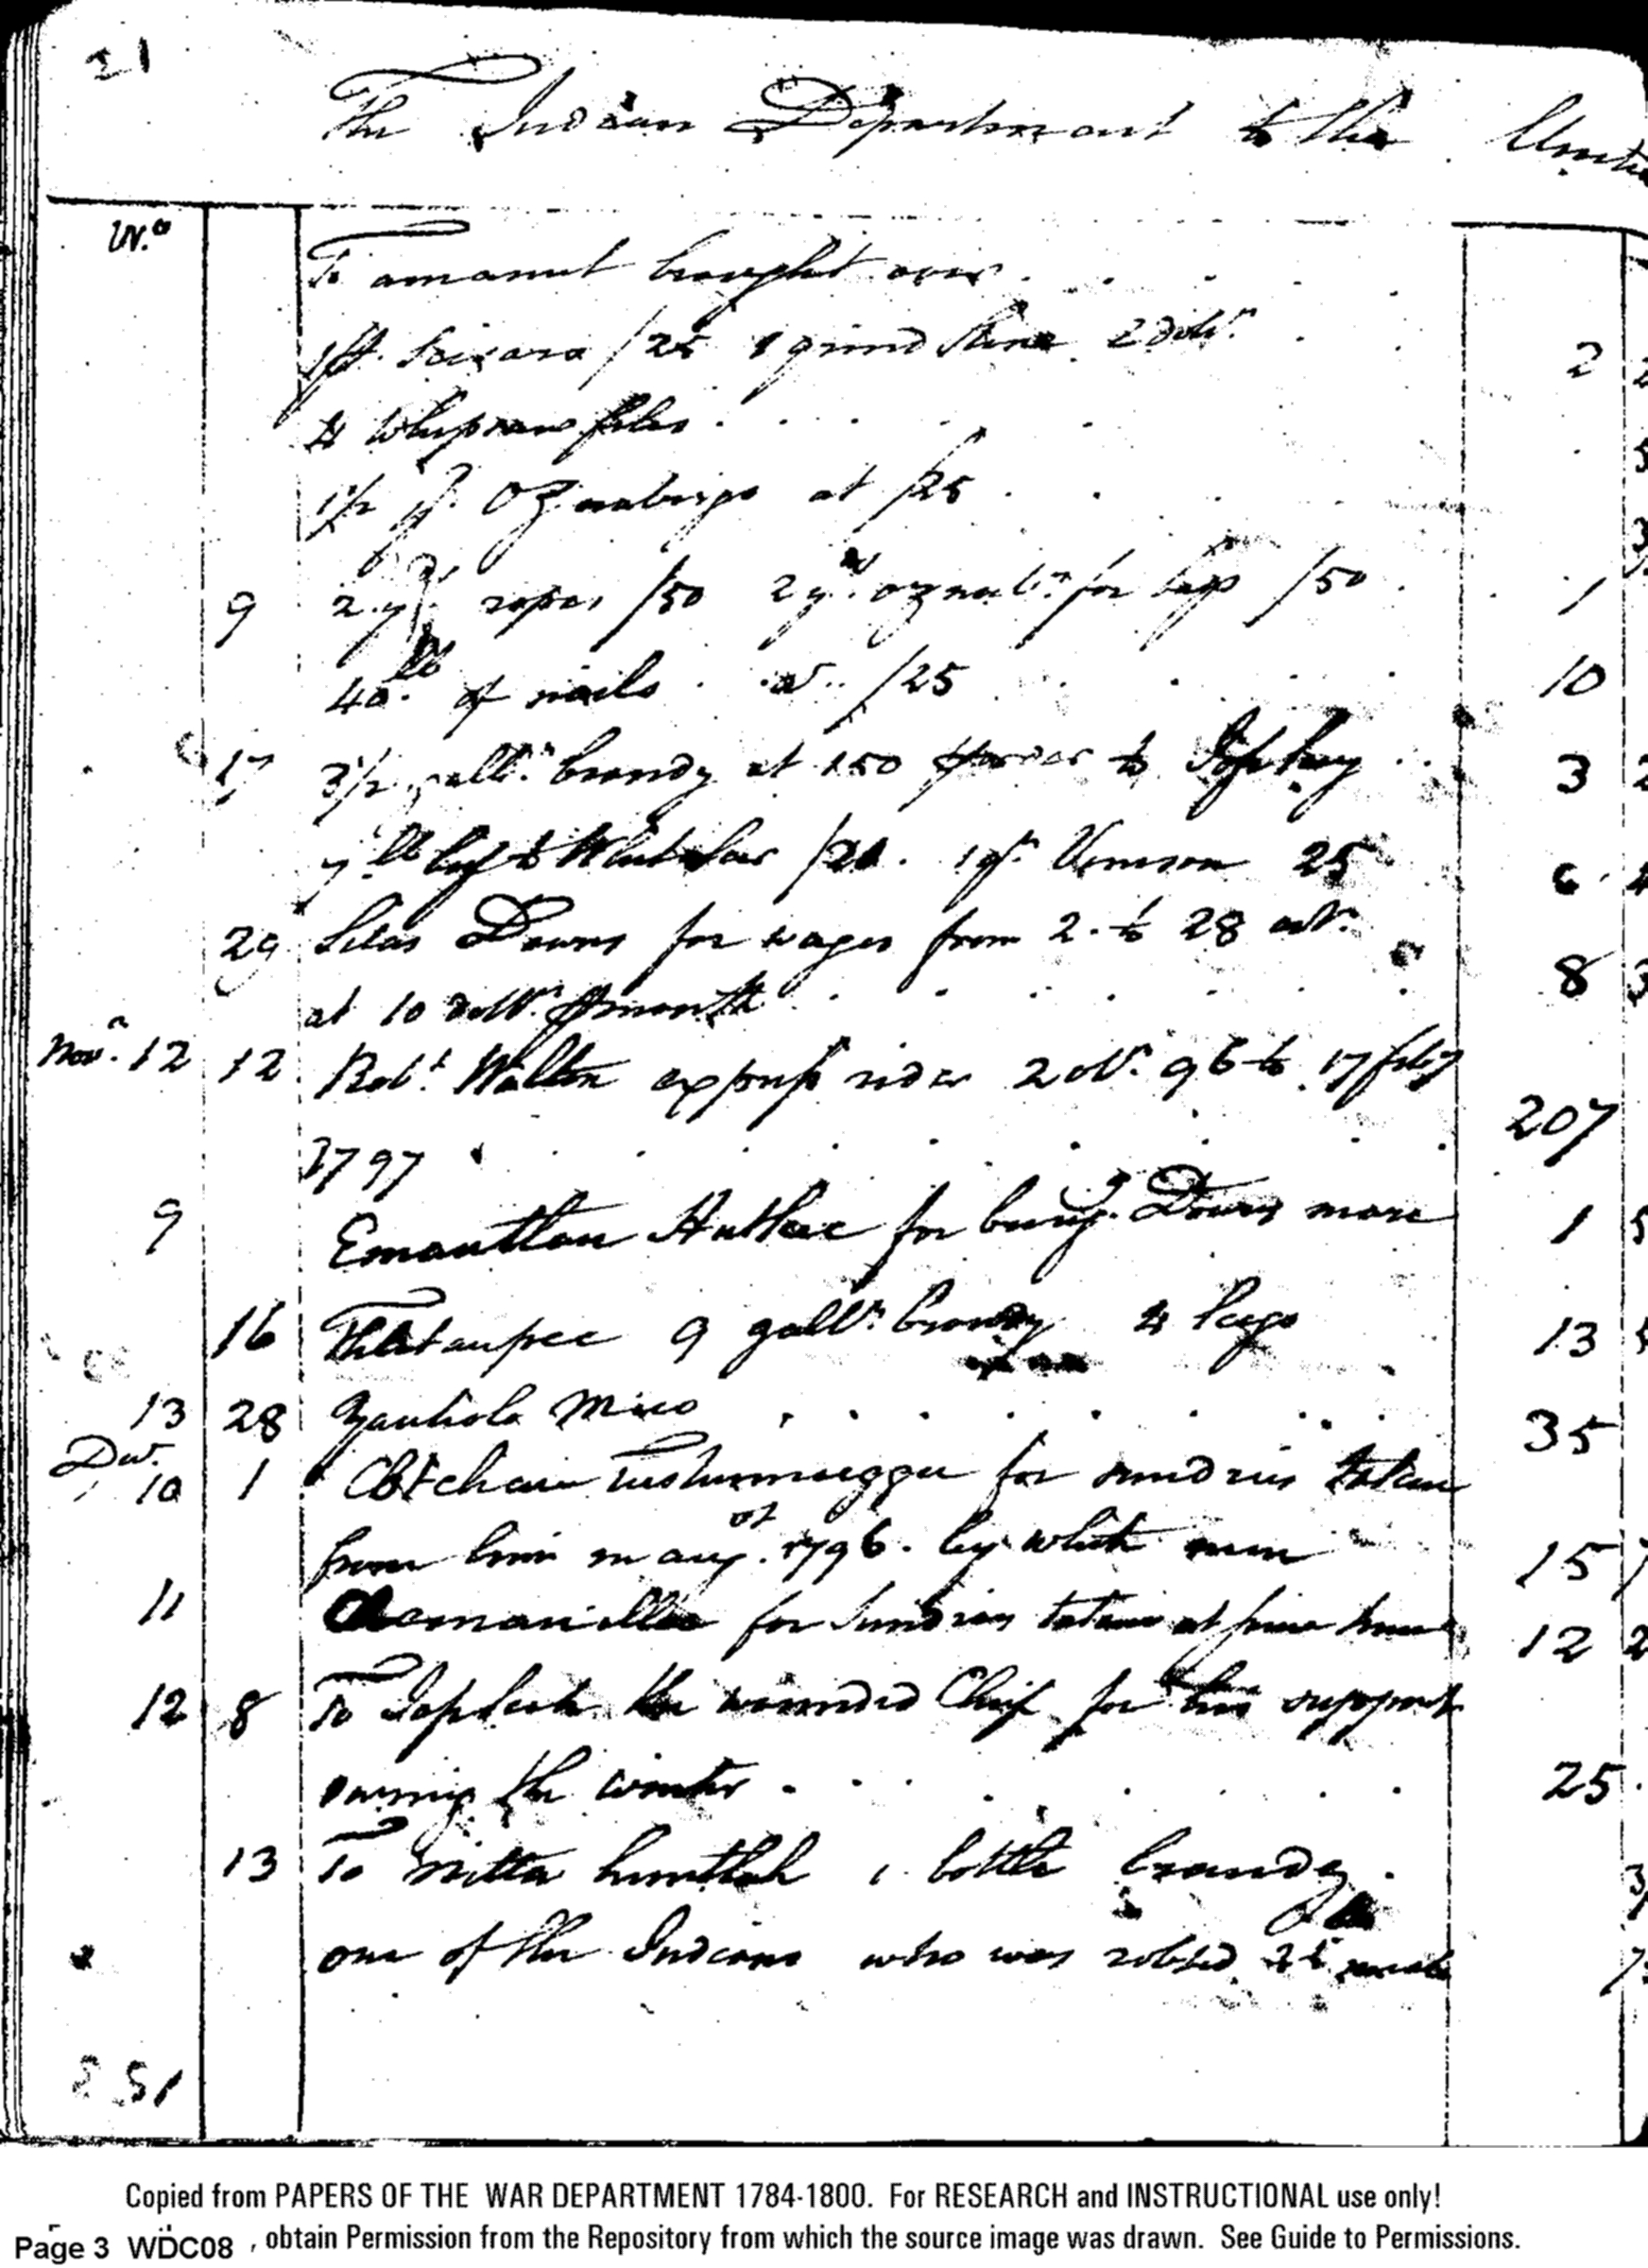 21
The Indian Department to the Unite
N.o
To amount brought over
1 pr. Scizars /25 1 grind stone 2 dolls. 2
4 Whipsaw files
1 1/2 yd. Oznabrigs at /25
9 2 yds. ropes /50 2 yds. oznabs. for bags /50 1
40 lb of nails a /25 10
17 3 1/2 galls. brandy at 150 3
7 lb to /21. 1 qr. Venison 25 6
29 Silas Downs for wages from 2. to 28 octr.
at 10 dolls. pr month 8
Novr. 12 12 Robt. Walton express rider 2 octr. 96 to 17 feby
1797 207
9 Emautlau Hutkee for bring. Downs mare 1
16 9 galls. brandy 4 kegs 13
13 28 Yauhola Mico 35
Decr.
10 1 Tustunnueggee for sundries taken
from him in augt. 1796. by white men 15
11 for sundries taken at 12
12 8 To the wounded Chief for his support
during the winter 25.
13 To 1 bottle brandy.
one of the Indians who was robbed
251
Copied from PAPERS OF THE WAR DEPARTMENT 1784-1800. For RESEARCH and INSTRUCTIONAL use only!
Page 3 WDC08 , obtain Permission from the Repository from which the source image was drawn. See Guide to Permissions.